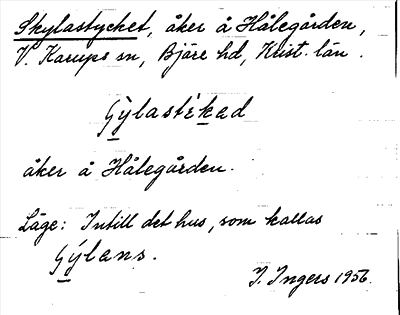 Skylastycket, åker å Hålegården,
V. Karups sn, Bjäre hd, Krist. län.
Gýlastèkad
åker å Hålegården.
Läge: Intill det hus, som kallas
Gýlans.
I. Ingers 1956.